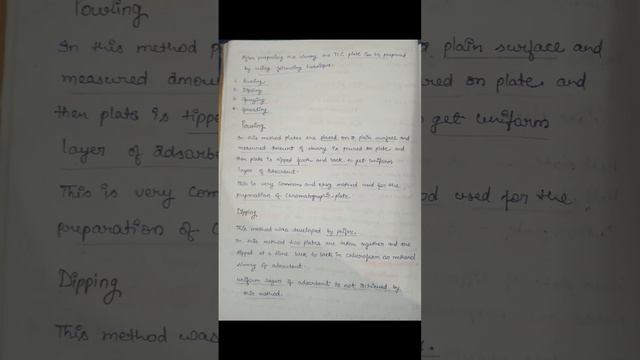 After preparing the slurry the TLC plate can be prepared
by using following technique.
1. Pouling
2. Dipping
3. Spraying
4. Spreading
Pouling
In this method plates are placed on a plain surface and
measured amount of slurry is poured on plate and
then plate is tipped forth and back to get uniform
layer of adsorbent.
This is very common and easy method used for the
preparation of chromatographic plate.
Dipping
This method was developed by
In this method two plates are taken together and are
dipped at a time back to back in chloroform or methanol
slurry of adsorbent.
uniform layer of adsorbent is not achieved by
this method.